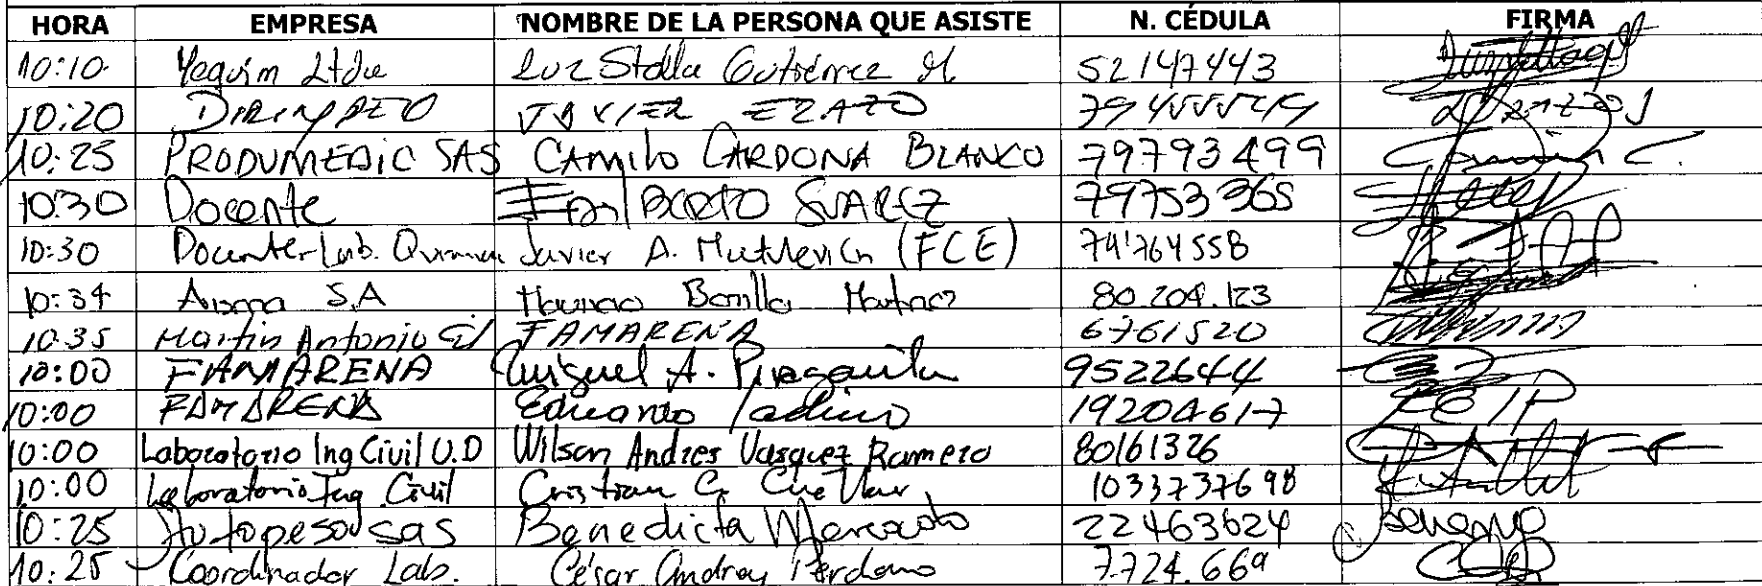 HORA EMPRESA NOMBRE DE LA PERSONA QUE ASISTE N. CÉDULA FIRMA
10:10 Yequim Ltda Luz Stella Gutiérrez M. 52147443
10:20 JAVIER ERAZO
10:25 PRODUMEDIC SAS CAMILO CARDONA BLANCO 79793499 C.
10:30 Docente SUAREZ 79753365
10:30 Docente-Lab. Javier A. (FCE) 79'764558
10:34 S.A Bonilla 80.204.123
10:35 Martin Antonio Gil FAMARENA 6761520
10:00 FAMARENA Miguel A. Piragauta 9522644
10:00 FAMARENA Eduardo 19204617
10:00 Laboratorio Ing Civil U.D Wilson Andres Vasquez Romero 80161326
10:00 Laboratorio Ing Civil Cristian G. Cuellar 1033737698
10:25 Autopesou sas Benedicta Mercado 22463624
10:25 Coordinador Lab. César Andrey Perdomo 7.724.669